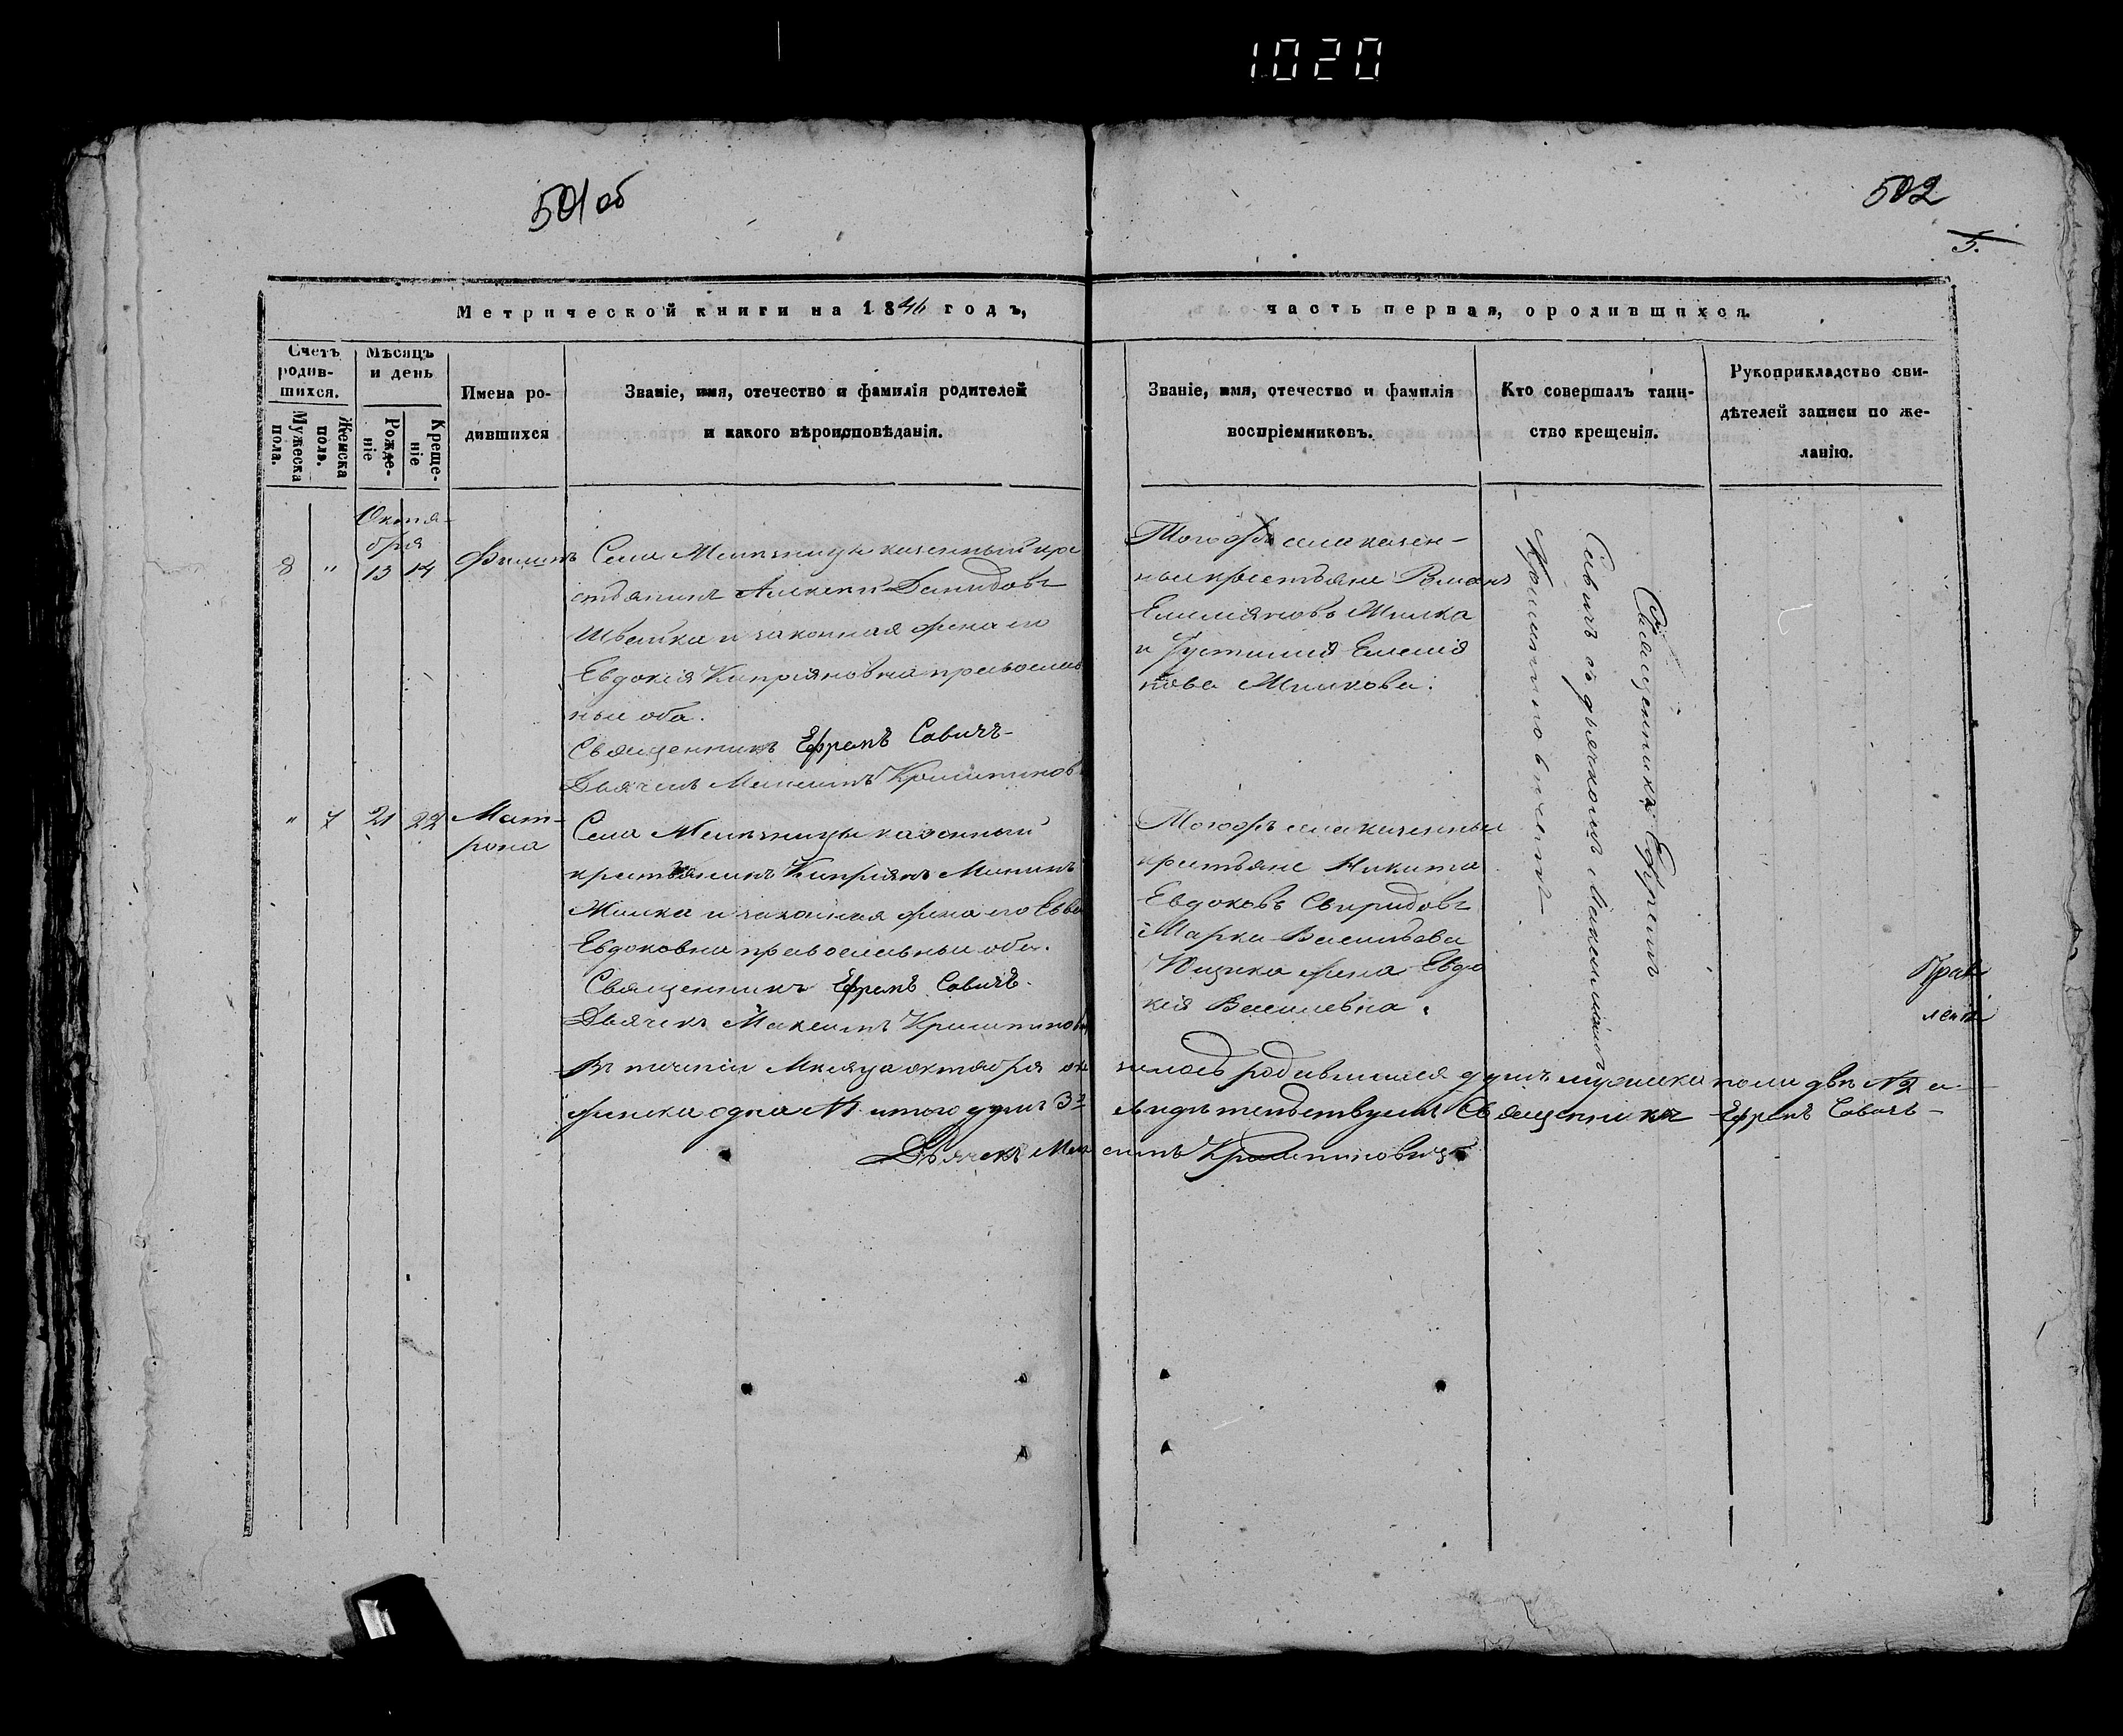 1020
501 об
502
5.
Метрической книги на 1846 годъ,
часть первая, о родившихся.
Счетъ родив-шихся.
Мужеска пола.
Женска полъ.
Мѣсяцъ и день
Рожде-ніе
Креще-ніе
Имена ро-
дившихся
Званіе, имя, отечество и фамилія родителей
и какого вѣроисповѣданія.
Званіе, имя, отечество и фамилія
воспріемниковъ.
Кто совершалъ таин-
ство крещенія.
Рукоприкладство сви-
дѣтелей записи по же-
ланію.
Октя-
бря
8 " 13 14
Села казенный кре
стьянинъ Алексѣй Демидовъ
Швейка и законная жена его
Евдокія Кипріяновна православ
ные оба.
Священникъ Ефремъ Савичъ
Дьячекъ Максимъ
Тогожъ села казен-
ные крестьяне Романъ
Емеліяновъ Милка
и Іустинія Емелія
нова Милкова.
" 7 21 22
Мат-
рона
Села казенный
крестьянинъ Кипріянъ Мининъ
Милка и законная жена его Евва
Евдоковна православные оба.
Священникъ Ефремъ Савичъ
Дьячекъ Максимъ
Тогожъ села казенные
крестьяне Никита
Евдоковъ Свиридовъ
Марка Васильева
жена Евдо
кія Василевна.
Священникъ Ефремъ
Савичъ съ дьячкомъ Максимомъ
Въ теченіи Месяца октября
родившихся душъ мужеска пола двѣ №2 и
женска одна №1 итого душъ 3
свидѣтельствуемъ Священникъ Ефремъ Савичъ
Дьячекъ Максимъ